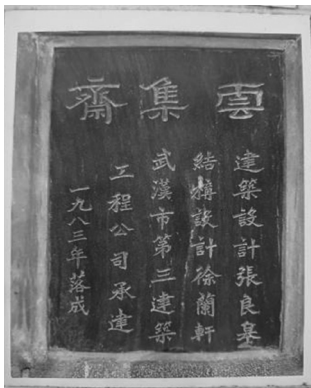 雲集齋
建築設計張良皋
結構設計徐蘭軒
武漢市第三建築
工程公司承建
一九八三年落成